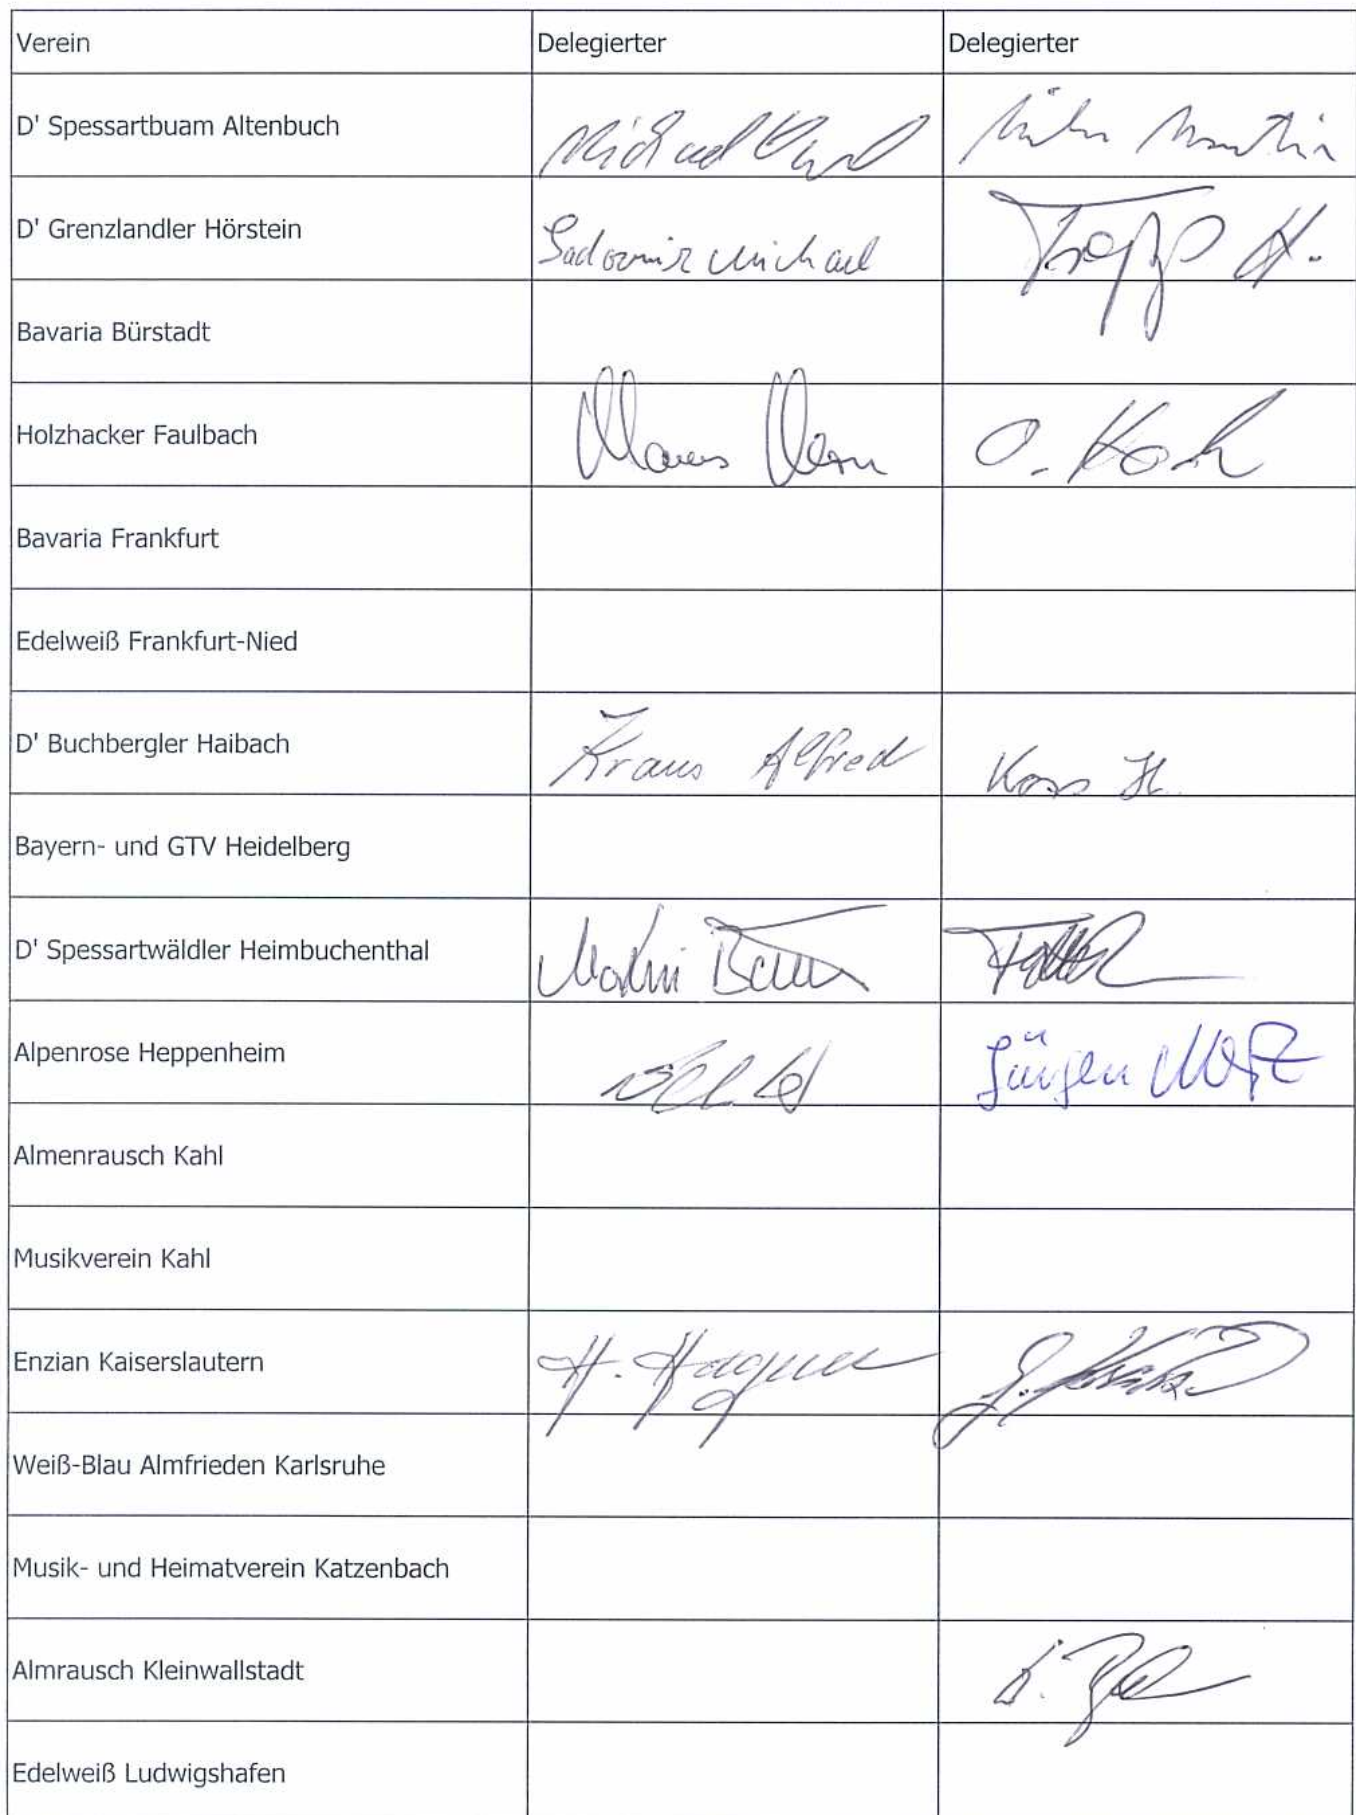 Verein Delegierter Delegierter
D' Spessartbuam Altenbuch Michael
D' Grenzlandler Hörstein Sadownik Michael H.
Bavaria Bürstadt
Holzhacker Faulbach O. Koch
Bavaria Frankfurt
Edelweiß Frankfurt-Nied
D' Buchbergler Haibach Kraus Alfred
Bayern- und GTV Heidelberg
D' Spessartwäldler Heimbuchenthal
Alpenrose Heppenheim Jürgen
Almenrausch Kahl
Musikverein Kahl
Enzian Kaiserslautern H. Hagner
Weiß-Blau Almfrieden Karlsruhe
Musik- und Heimatverein Katzenbach
Almrausch Kleinwallstadt
Edelweiß Ludwigshafen